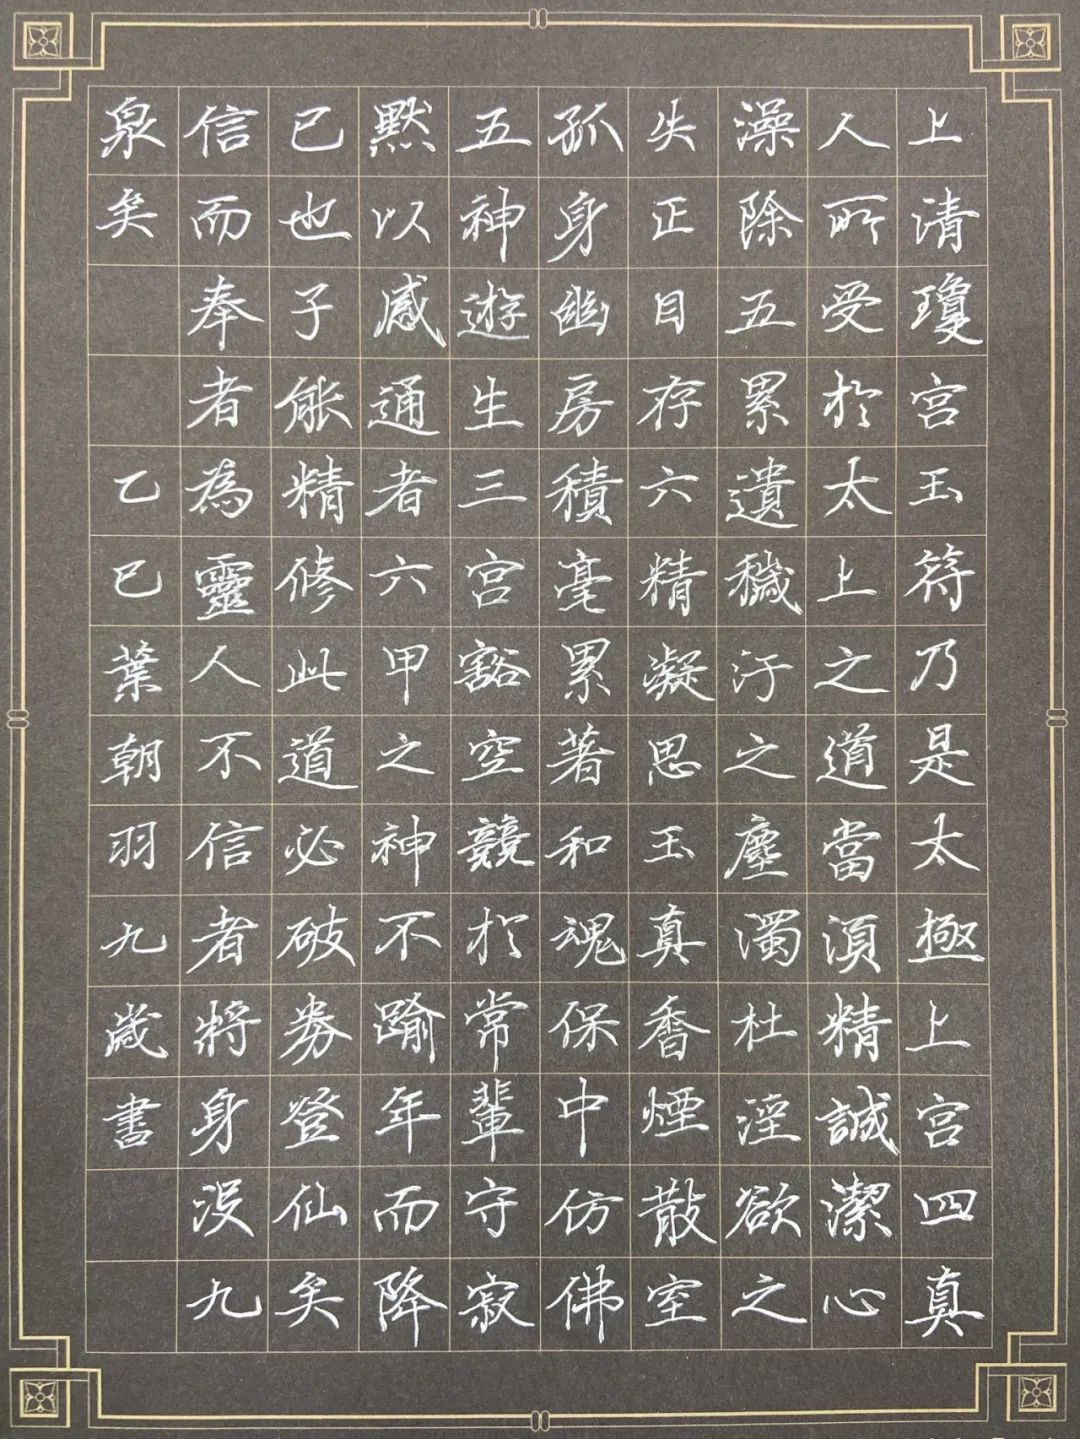 上清瓊宮玉符乃是太極上宮四真
人所受於太上之道當須精誠潔心
澡除五累遺穢汙之塵濁杜淫欲之
失正目存六精凝思玉真香煙散室
孤身幽房積毫累著和魂保中仿佛
五神遊生三宮豁空競於常輩守寂
默以感通者六甲之神不踰年而降
已也子能精修此道必破券登仙矣
信而奉者為靈人不信者將身沒九
泉矣
乙巳葉朝羽九歲書